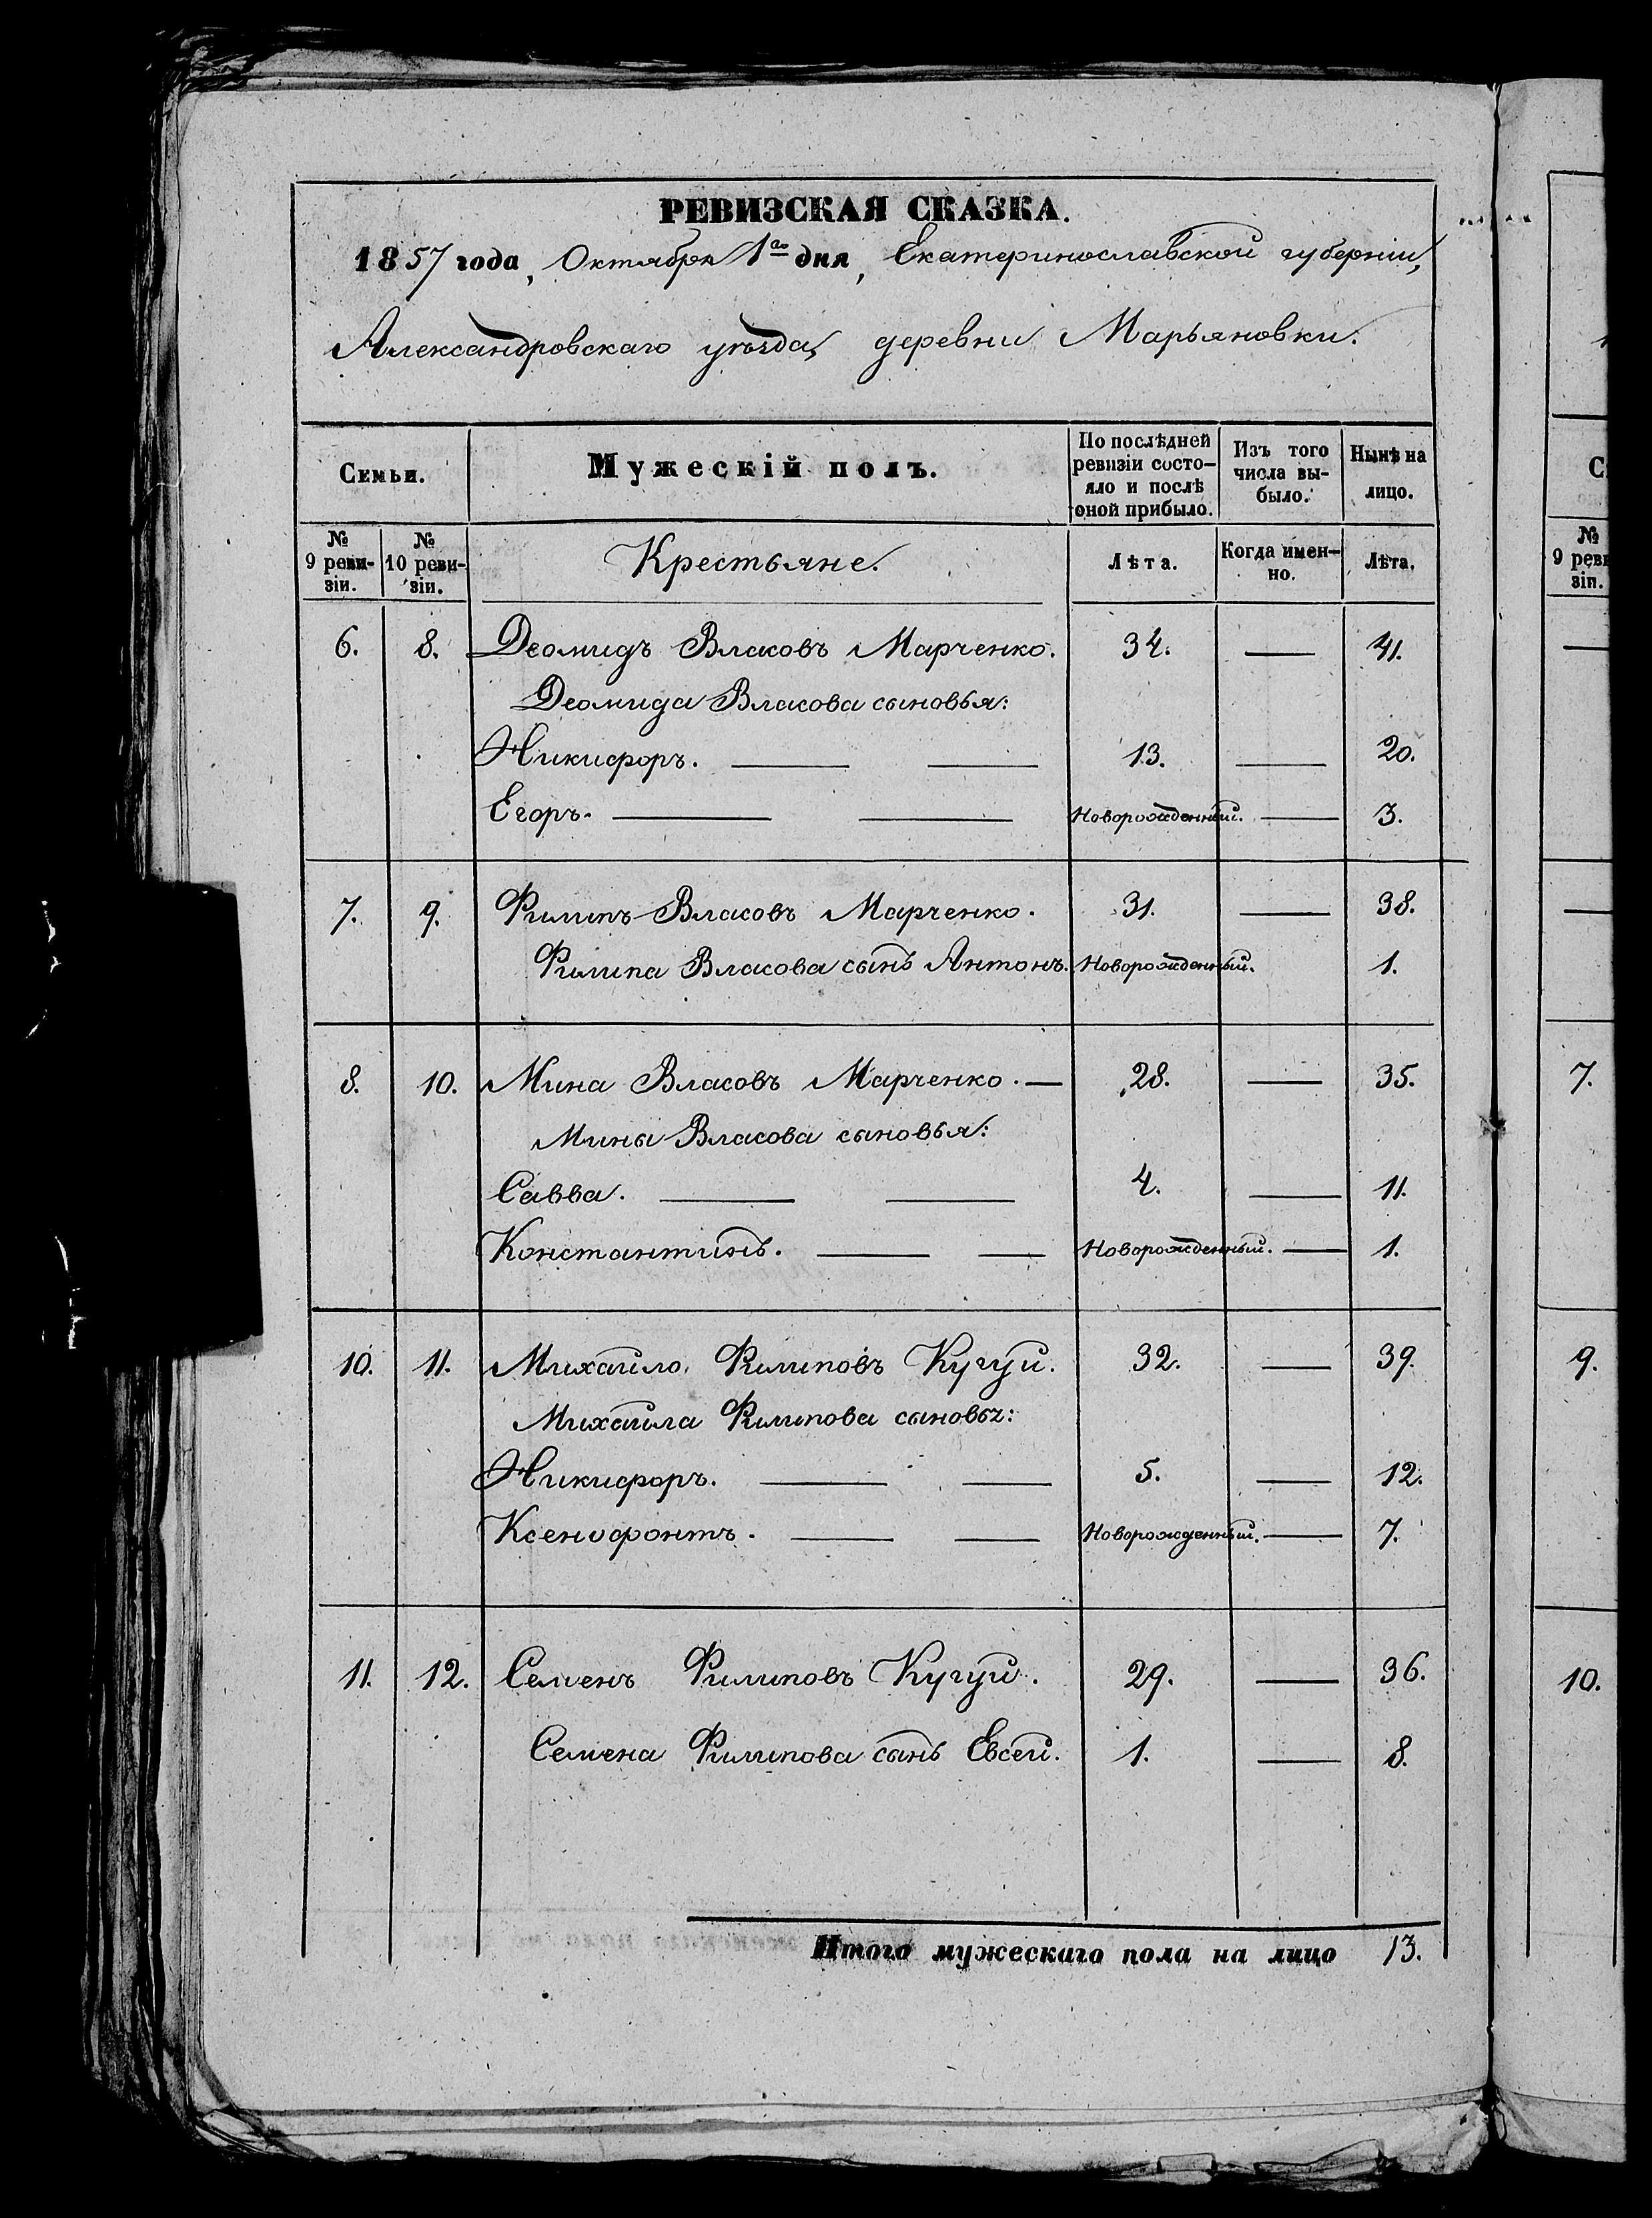 РЕВИЗСКАЯ СКАЗКА.
1857 года, Октября 1го дня, Екатеринославской губерніи,
Александровскаго уѣзда, деревни Марьяновки.
Семьи.
Мужескій полъ.
По послѣдней ревизіи состо-яло и послѣ оной прибыло.
Изъ того числа вы-было.
Нынѣ на лицо.
№ 9 реви-зіи.
№ 10 реви-зіи.
Крестьяне.
Лѣта.
Когда имен-но.
Лѣта.
6. 8. Деомидъ Власовъ Марченко. 34. — 41.
Деомида Власова сыновья:
Никифоръ. — — 13. — 20.
Егоръ. — — Новорожденный. — 3.
7. 9. Филипъ Власовъ Марченко. 31. — 38.
Филипа Власова сынъ Антонъ. Новорожденный. 1.
8. 10. Мина Власовъ Марченко. — 28. — 35.
Мины Власова сыновья:
Савва. — — 4. — 11.
Константинъ. — — Новорожденный. — 1.
10. 11. Михайло Филиповъ Кугуй. 32. — 39.
Михайла Филипова сыновья:
Никифоръ. — — 5. — 12.
Ксенофонтъ. — — Новорожденный. — 7.
11. 12. Семенъ Филиповъ Кугуй. 29. — 36.
Семена Филипова сынъ Евсей. 1. — 8.
Итого мужескаго пола на лицо 13.
№
9 реви
зіи.
7.
9.
10.